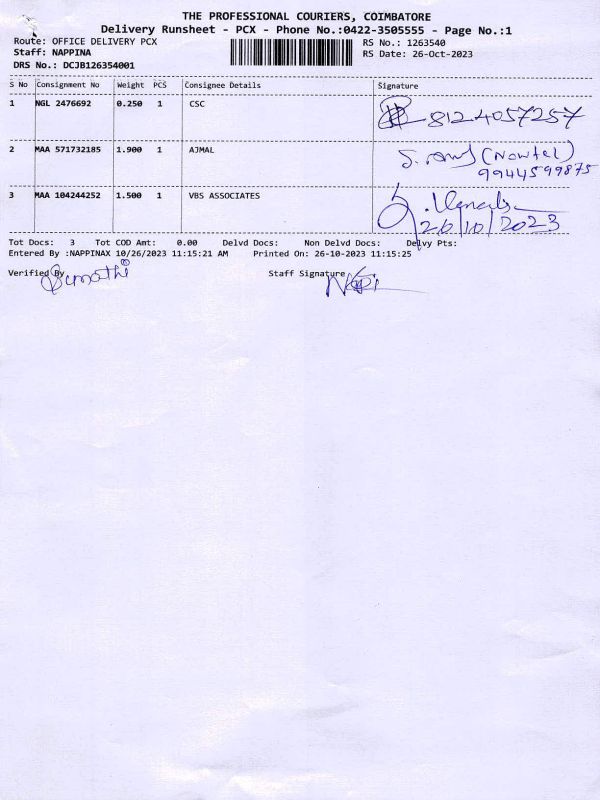 THE PROFESSIONAL COURIERS, COIMBATORE
Delivery Runsheet - PCX - Phone No.:0422-3505555 - Page No.:1
Route: OFFICE DELIVERY PCX RS No.: 1263540
Staff: NAPPINA RS Date: 26-Oct-2023
DRS No.: DCJB126354001
S No Consignment No Weight PCS Consignee Details Signature
1 NGL 2476692 0.250 1 CSC
8124057257
2 MAA 571732185 1.900 1 AJMAL
(Nowtel)
9944599875
3 MAA 104244252 1.500 1 VBS ASSOCIATES
26/10/2023
Tot Docs: 3 Tot COD Amt: 0.00 Delvd Docs: Non Delvd Docs: Delvy Pts:
Entered By :NAPPINAX 10/26/2023 11:15:21 AM Printed On: 26-10-2023 11:15:25
Verified By Staff Signature